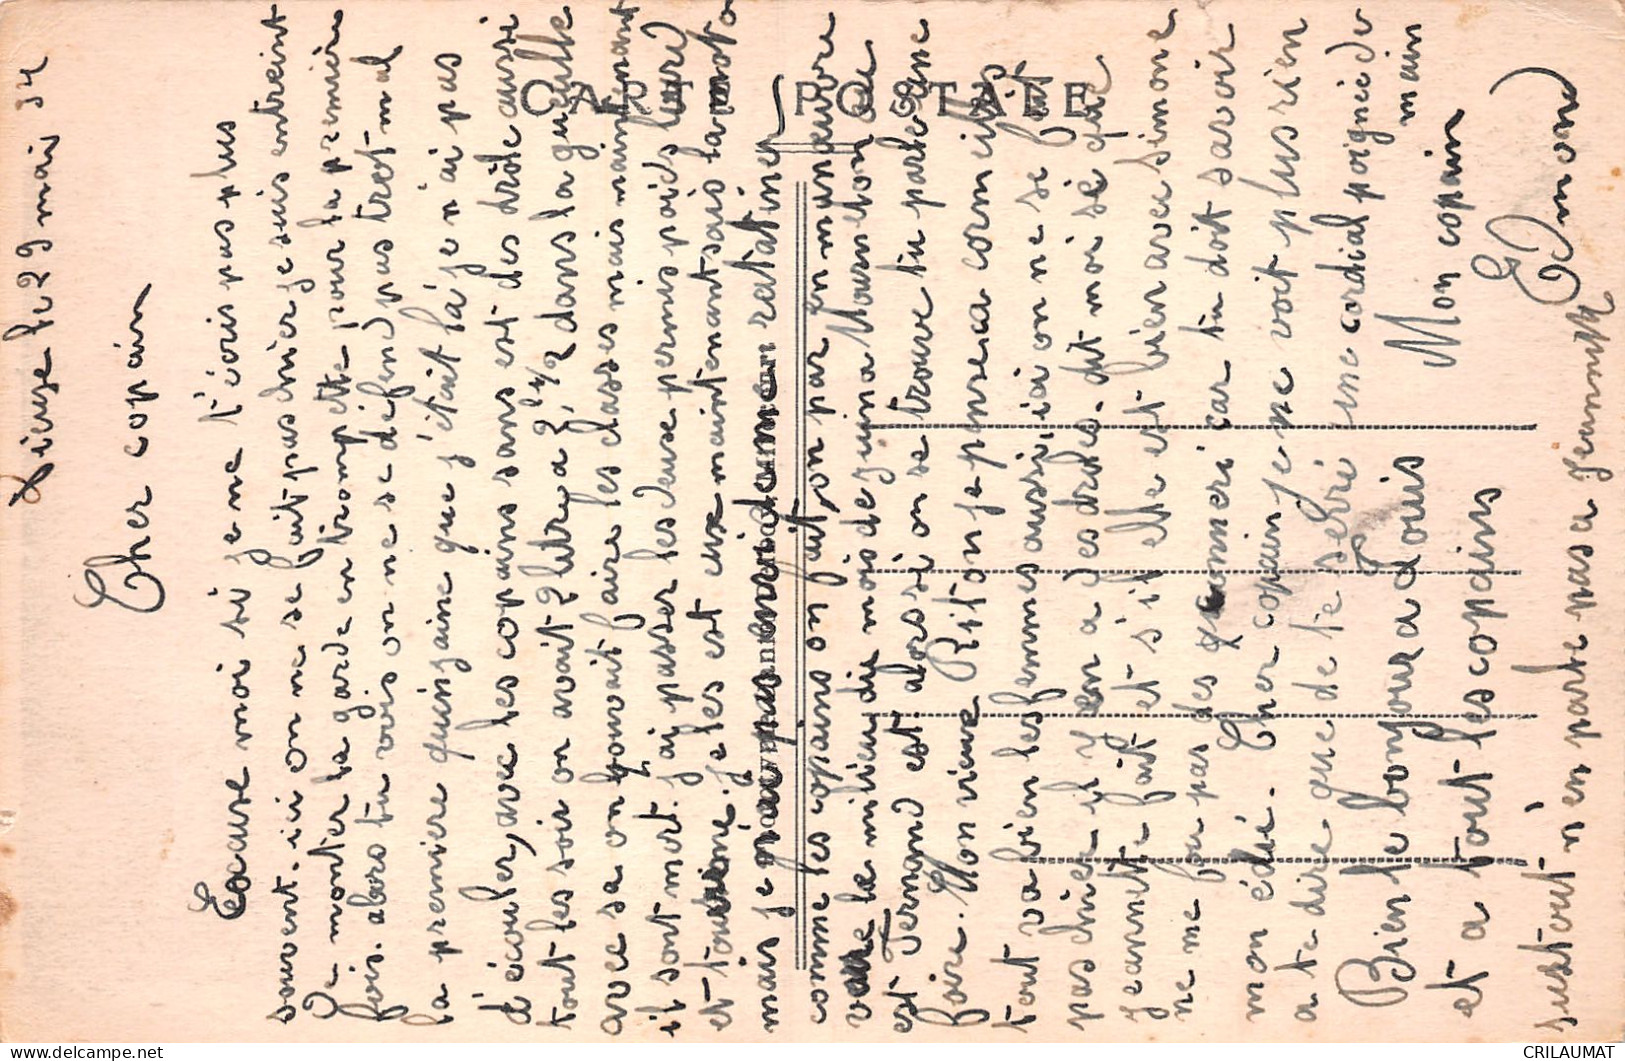 Dieuze le 29 mais 34
Cher copain
Excuse moi si je ne t'écris pas plus
souvent. ici on ne se fait pas chier je suis entreint
De monter la garde en trompette pour la première
fois. alors tu vois on ne se défend pas trot mal
la premiere quinzaine que j'était là je n'ai pas
d'écouler, avec les copains sans est des drôle aussi
tout les soir on avait 2 litre a 2 1/2 dans la gueulle
avec sa on pouvait faire les classes mais maintenant
il sont mort. j'ai passer les deuxe permis poids lourd
et tourisme. je les est eux maintenant sais la moto
mais je n'ai pas envie de me ratatiner
comme les copains on fait, on par en manœuvre
vers le milieu du mois de juin a Mourmelon ou
est Fernand est alors si on se trouve tu parle d'une
foire. Mon vieux Riton je pense ca corn ills
tout va bien les femmes aussi, ici on ne se fait
pas chier il y en a des drôles. dit moi se que
jeannette fait et s'il elle est bien avec simone
ne me four pas des conneri car tu doit savoir
mon idée. Cher copain je ne voit plus rien
a te dire que de te serré une cordial poignée de
main
Bien le bonjour a Louis
et a tout les copains
Mon copain
Edmond
surtout n'en parle pas a jeannette
CARTE POSTALE
CRILAUMAT